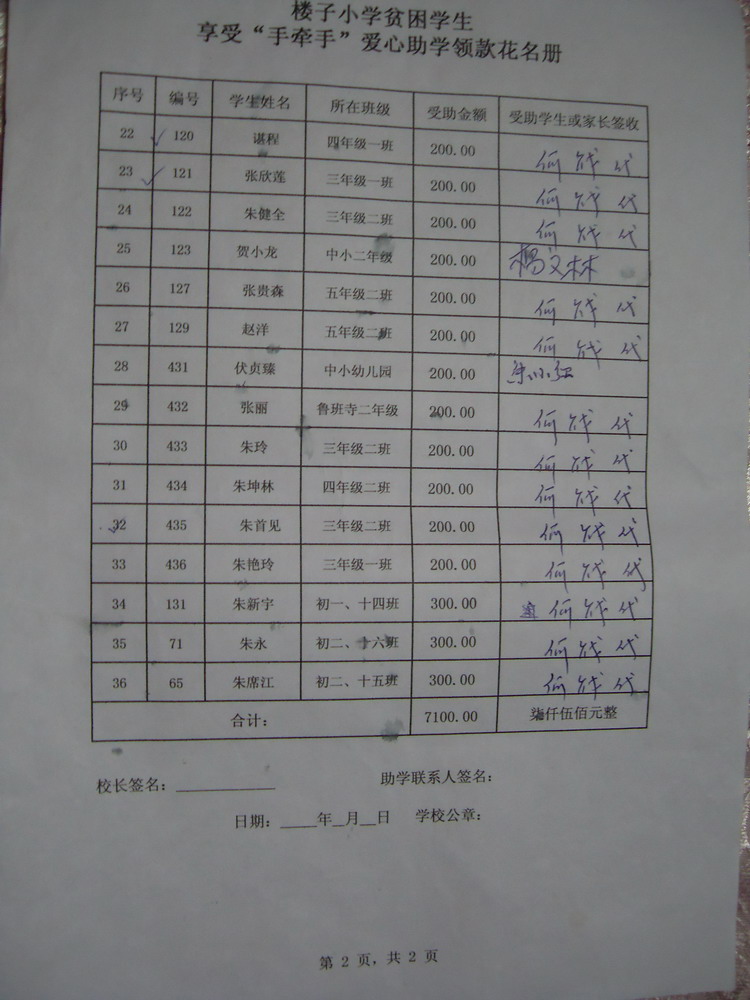 楼子小学贫困学生
享受“手牵手”爱心助学领款花名册
序号 编号 学生姓名 所在班级 受助金额 受助学生或家长签收
22 120 谌程 四年级一班 200.00 何 代
23 121 张欣莲 三年级一班 200.00 何 代
24 122 朱健全 三年级二班 200.00 何 代
25 123 贺小龙 中小二年级 200.00 杨文林
26 127 张贵森 五年级二班 200.00 何 代
27 129 赵洋 五年级二班 200.00 何 代
28 431 伏贞臻 中小幼儿园 200.00
29 432 张丽 鲁班寺二年级 200.00 何 代
30 433 朱玲 三年级二班 200.00 何 代
31 434 朱坤林 四年级二班 200.00 何 代
32 435 朱首见 三年级二班 200.00 何 代
33 436 朱艳玲 三年级一班 200.00 何 代
34 131 朱新宇 初一、十四班 300.00 何 代
35 71 朱永 初二、十六班 300.00 何 代
36 65 朱席江 初二、十五班 300.00 何 代
合计： 7100.00 柒仟伍佰元整
校长签名：____________ 助学联系人签名：
日期：_____年__月__日 学校公章：
第 2 页，共 2 页